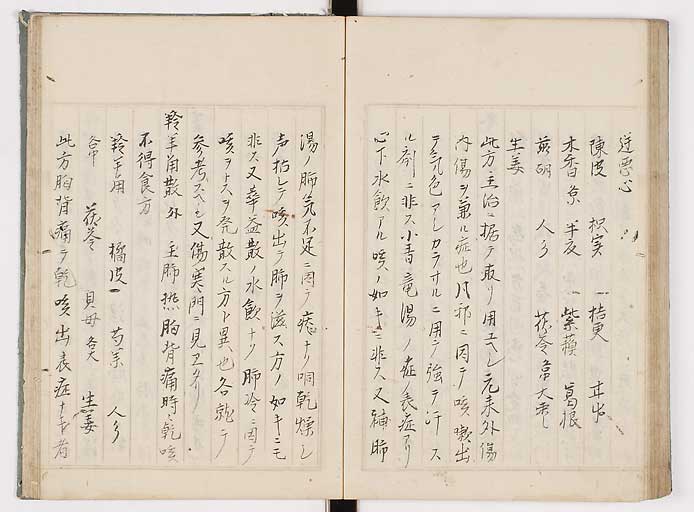 逆悪心
陳皮 枳実 一 桔更 甘中
木香 半夜 一 紫蘓 葛根
前胡 人 茯苓 大棗
生姜
此方主治ニ据テ取リ用エベシ元来外傷
内傷ヲ兼ル症也外邪ニ因テ咳嗽出
テ気色アシカラサルニ用テ強テ汗ス
ル剤ニ非ス小青竜湯ノ症ノ表症アリ
心下水飲アル咳ノ如キニ非ス又補肺
湯ノ肺気不足ニ因テ痰ナリ咽乾燥シ
声枯レテ咳出テ肺ヲ滋ス方ノ如キニモ
非ス又華益散ノ水飲ナリ肺冷ニ因テ
咳ヲトスヲ発散スル方ト異也各就テ
参考スヘシ又傷寒門ニ見エタリ
羚羊角散 外 主肺熱胸背痛時々乾咳
不得食方
羚羊角 橘皮 一 芍 人
茯苓 貝母 生姜
此方胸背痛テ乾咳出表症ナキ者